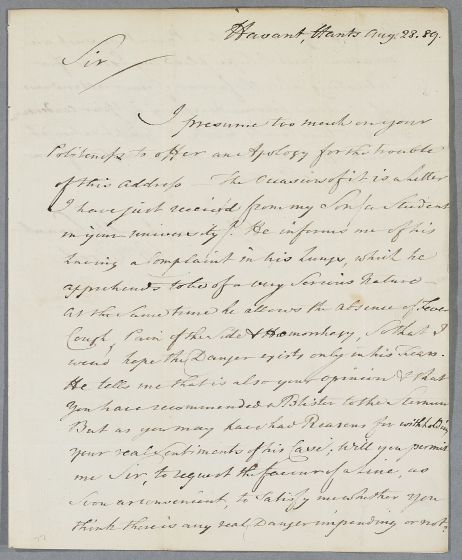 Havant, Hants Aug. 28. 89.
Sir
I presume too much on your
Politeness to offer an Apology for the trouble
of this address — The Occasion of it is a Letter
I have just received from my Son (a Student
in your University). He informs me of his
having a Complaint in his Lungs, which he
apprehends to be of a very Serious Nature —
at the same time he allows the absence of Fever
Cough, Pain of the Side & Hæmorrhagy, So that I
would hope the Danger exists only in his Fears.
He tells me that is also your opinion & that
You have recommended a Blister to the
But as you may have had Reasons for withholding
your real Sentiments of his Case, Will you permit
me Sir, to request the favour of a Line, as
Soon as convenient, to Satisfy me whether you
think there is any real Danger impending or not?